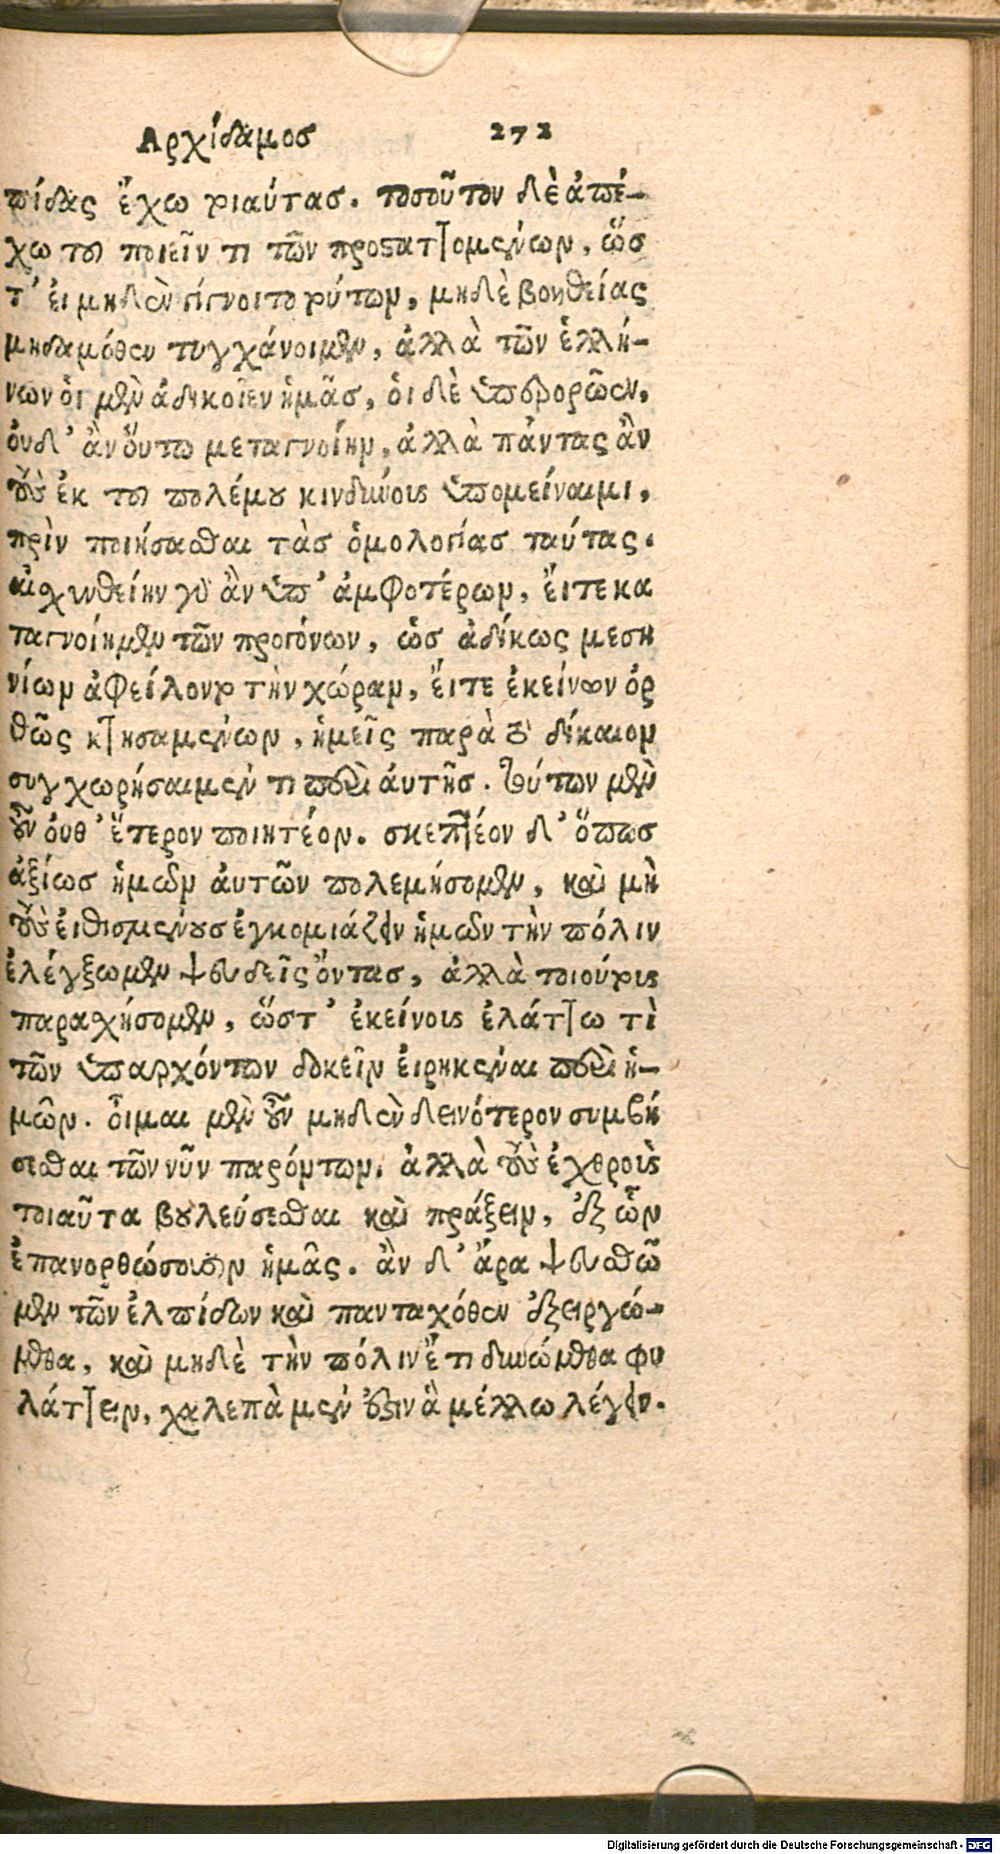 Αρχίδαμος 272
πίδας ἔχω τοιαύτας. τοσοῦτον δὲ ἀπέ-
χω τοῦ ποιεῖν τι τῶν προσατ]ομένων, ὥς
τ’ ἐι μηδὲν γίγνοιτο τούτων, μηδὲ βοηθείας
μηδαμόθεν τυγχάνοιμεν, ἀλλὰ τῶν ἑλλή-
νων ὁἱ μὲν ἀδικοῖεν ἡμᾶς, ὁι δὲ ὑπερορῷεν,
ὀυδ’ ἂν ὅυτω μεταγνοίην, ἀλλὰ πάντας ἂν
τοὺς ἐκ τοῦ πολέμου κινδύνους ὑπομείναιμι,
πρὶν ποιήσασθαι τὰς ὁμολογίας ταύτας.
αἰσχυνθείην γὰρ ἂν ὑπ’ ἀμφοτέρων, ἔιτε κα
ταγνοίημεν τῶν προγόνων, ὡς ἀδίκως μεση
νίων ἀφείλοντο τὴν χώραν, ἔιτε ἐκείνων ὀρ
θῶς κτησαμένων, ἡμεῖς παρὰ τὸ δίκαιον
συγχωρήσαιμέν τι περὶ ἀυτῆς. τούτων μὲν
οὖν ὀυθ’ ἕτερον ποιητέον. σκεπτέον δ’ ὅπως
ἀξίως ἡμῶν ἀυτῶν πολεμήσομεν, καὶ μὴ
τοὺς ἐιθισμένους ἐγκομιάζειν ἡμῶν τὴν πόλιν
ἐλέγξωμεν ψευδεῖς ὄντας, ἀλλὰ τοιούτους
παραχήσομεν, ὥστ’ ἐκείνους ἐλάττω τὶ
τῶν ὑπαρχόντων δοκεῖν ἐιρηκέναι περὶ ἡ-
μῶν. ὀῖμαι μὲν οὖν μηδὲν δεινότερον συμβή
σεσθαι τῶν νῦν παρόντων. ἀλλὰ τοὺς ἐχθροὺς
τοιαῦτα βουλεύσεσθαι καὶ πράξειν, ἐξ ὧν
ἐπανορθώσουσιν ἡμᾶς. ἂν δ’ ἄρα ψευσθῶ
μεν τῶν ἐλπίδων καὶ πανταχόθεν ἐξειργώ-
μεθα, καὶ μηδὲ τὴν πόλιν ἔτι δυνώμεθα φυ
λάττειν, χαλεπὰ μέν ἐστιν ἃ μέλλω λέγειν.
Digitalisierung gefördert durch die Deutsche Forschungsgemeinschaft - DFG